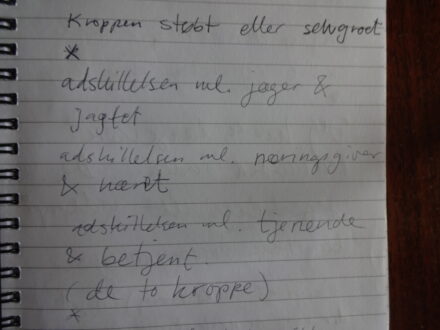 Kroppen støbt eller selvgroet
*
adskillelsen ml. jæger &
jagtet
adskillelsen ml. næringsgiver
& næret
adskillelsen ml. tjenende
& betjent.
(de to kroppe)
*